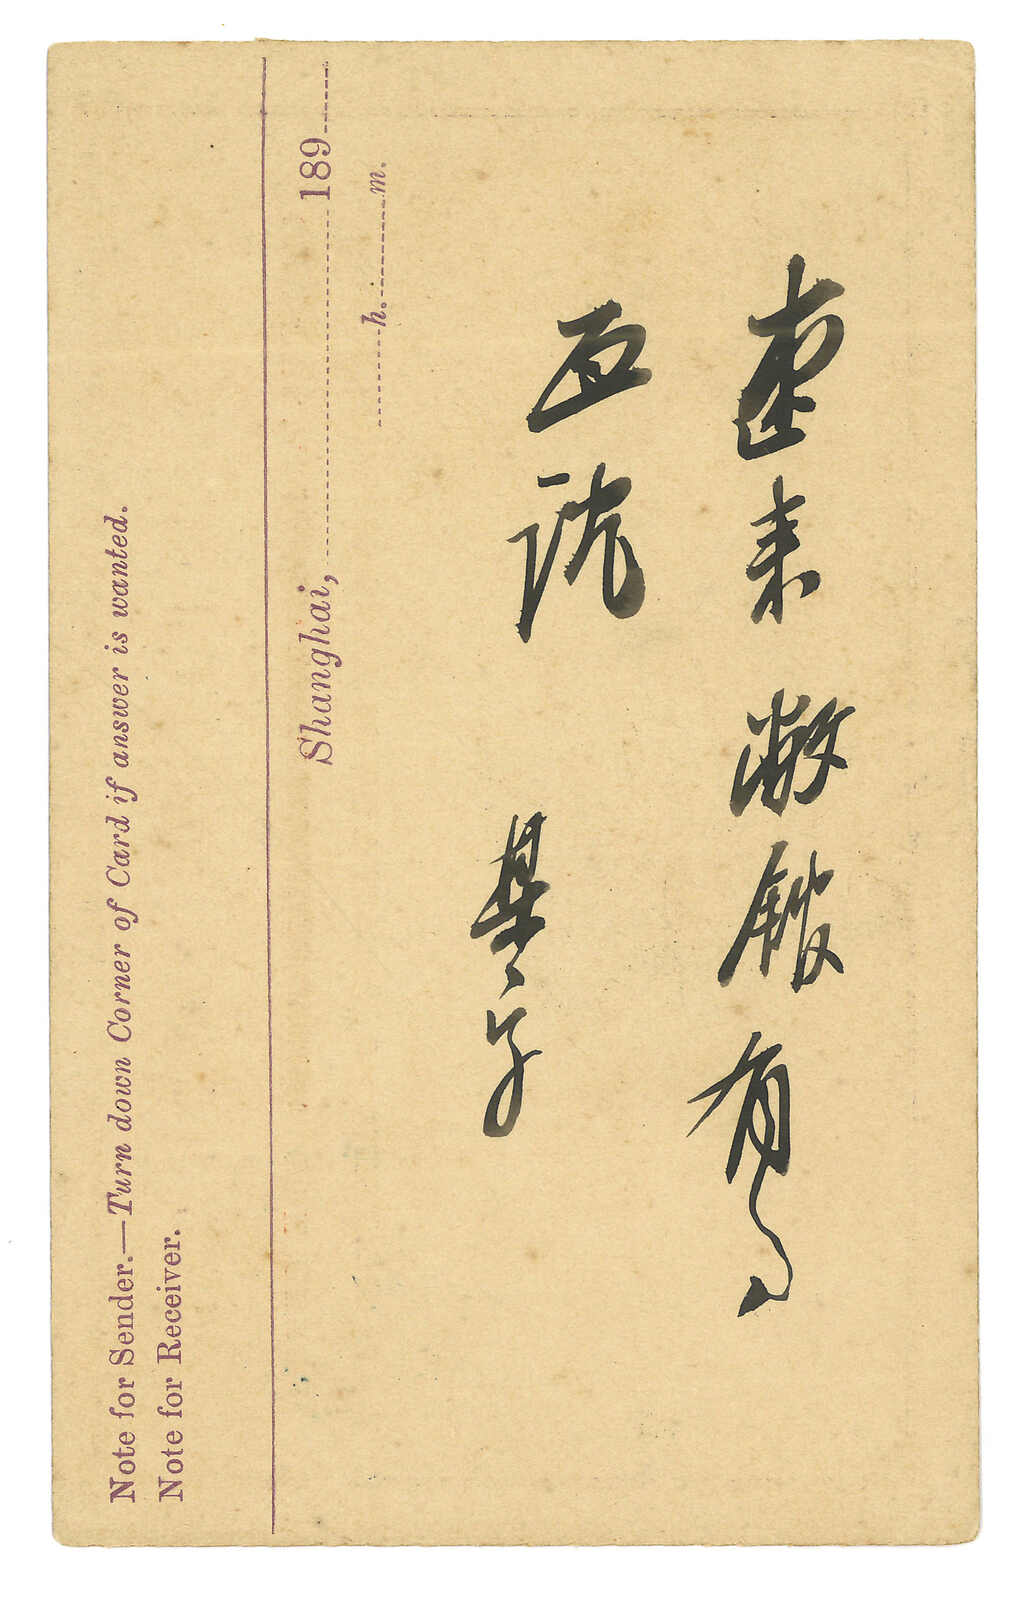 Note for Sender.—Turn down Corner of Card if answer is wanted.
Note for Receiver.
Shanghai, 189
h. m.
速来敝館有
面